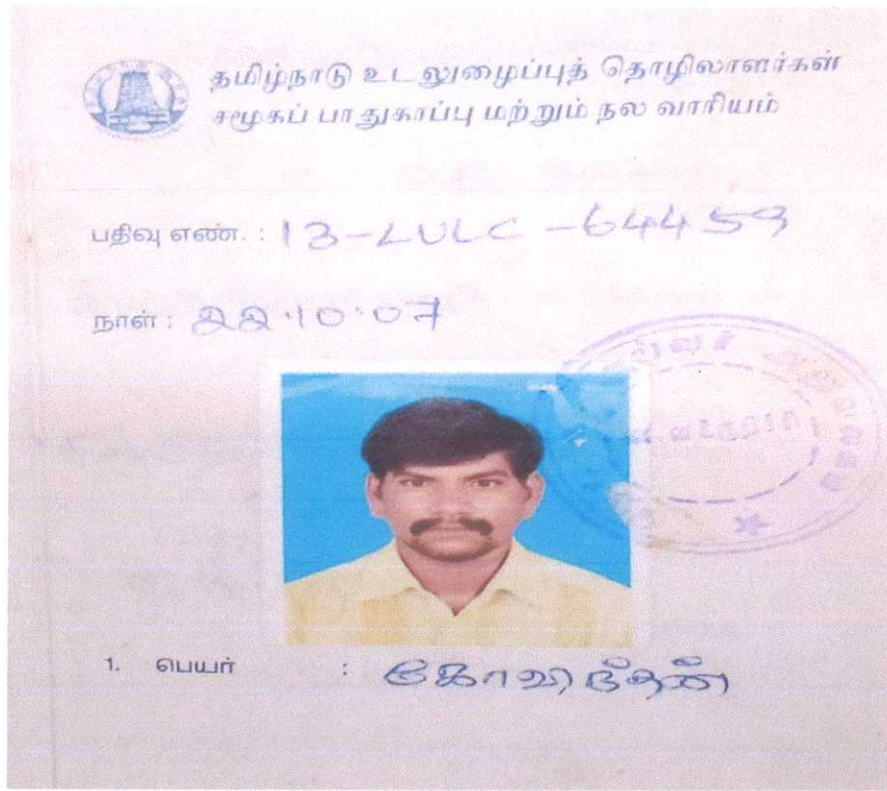 தமிழ்நாடு உடலுழைப்புத் தொழிலாளர்கள்
சமூகப் பாதுகாப்பு மற்றும் நல வாரியம்
பதிவு எண். : 13-LULC-64459
நாள் : 22.10.07
1. பெயர் : கோவிந்தன்